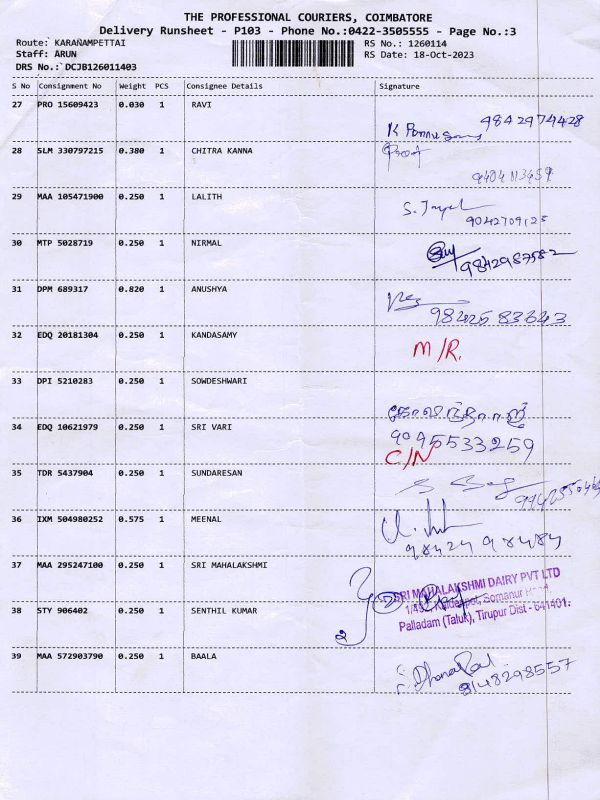 THE PROFESSIONAL COURIERS, COIMBATORE
Delivery Runsheet - P103 - Phone No.:0422-3505555 - Page No.:3
Route: KARANAMPETTAI RS No.: 1260114
Staff: ARUN RS Date: 18-Oct-2023
DRS No.: DCJB126011403
S No Consignment No Weight PCS Consignee Details Signature
27 PRO 15609423 0.030 1 RAVI
9842974428
28 SLM 330797215 0.380 1 CHITRA KANNA
29 MAA 105471900 0.250 1 LALITH
9042709125
30 MTP 5028719 0.250 1 NIRMAL
9842987582
31 DPM 689317 0.820 1 ANUSHYA
32 EDQ 20181304 0.250 1 KANDASAMY M/R.
33 DPI 5210283 0.250 1 SOWDESHWARI
34 EDQ 10621979 0.250 1 SRI VARI
9095533259
C/N
35 TDR 5437904 0.250 1 SUNDARESAN
36 IXM 504980252 0.575 1 MEENAL
37 MAA 295247100 0.250 1 SRI MAHALAKSHMI
SRI MAHALAKSHMI DAIRY PVT LTD
Somanur
38 STY 906402 0.250 1 SENTHIL KUMAR
Palladam (Taluk), Tirupur Dist - 641401.
39 MAA 572903790 0.250 1 BAALA
8148298557